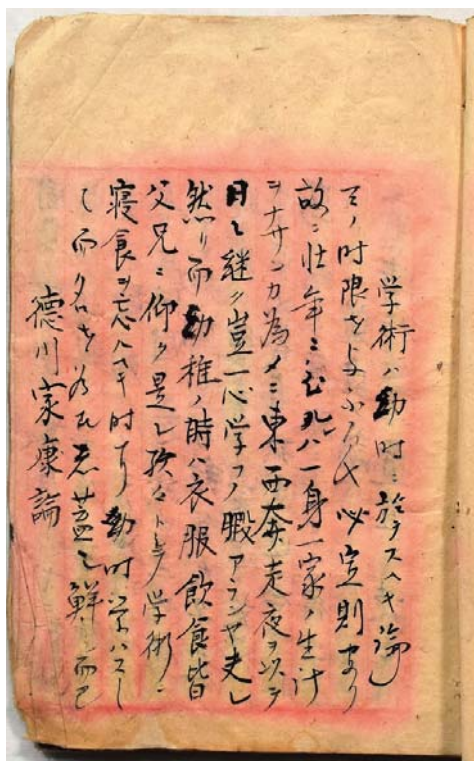 学術ハ幼時ニ於テスヘキ論
故ニ壮年ニ至レハ一身一家ノ生計
ヲナサンカ為メニ東西奔走夜ヲ以テ
日ニ継ク豈一心学フノ暇アランヤ夫レ
然リ而幼稚ノ時ハ衣服飲食皆
父兄ニ仰ク是レ孜々トシテ学術ニ
寝食ヲ忘ルヘキ時ナリ幼時学ハスシ
テ而名を為ス者蓋シ鮮シ而已
徳川家康論